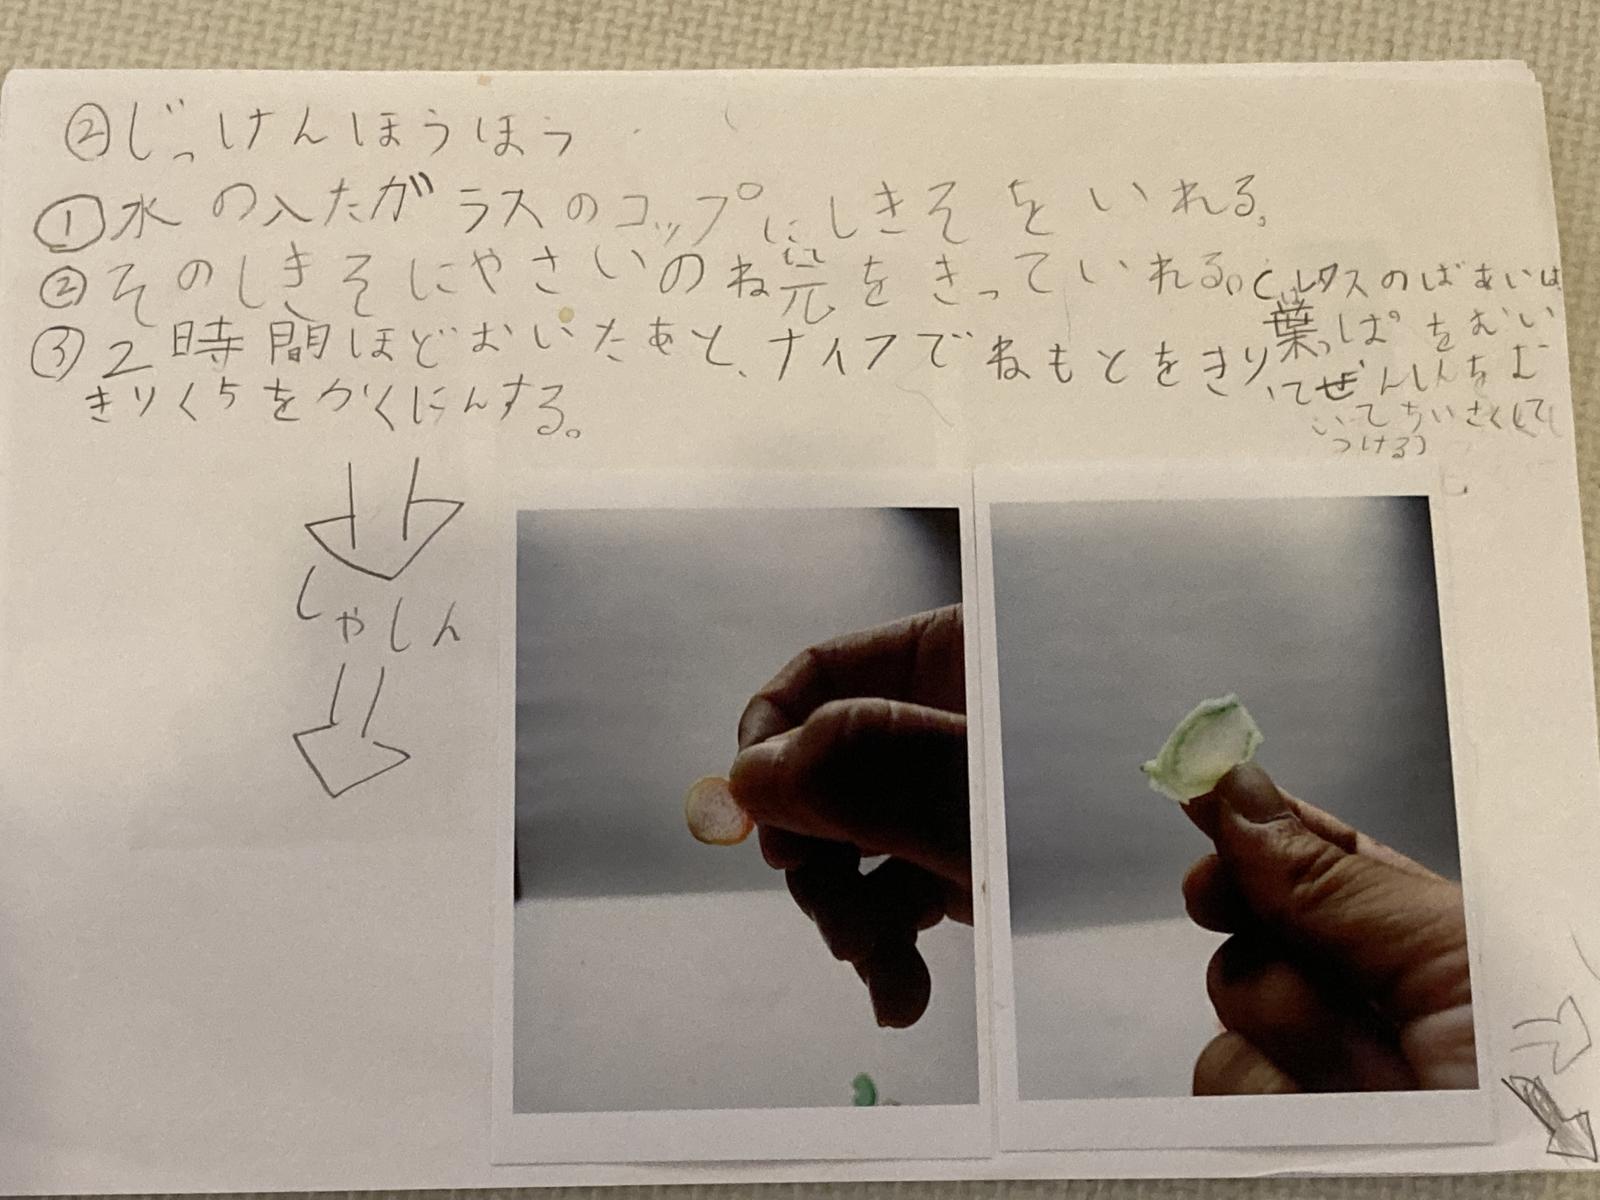 ②じっけんほうほう
①水の入たガラスのコップにしきそをいれる。
②そのしきそにやさいのね元をきっていれる。(レタスのばあいは
葉っぱをむい
てぜんしんをむ
いてちいさくして
つける)
③2時間ほどおいたあと、ナイフでねもとをきり、
きりくちをかくにんする。
しゃしん